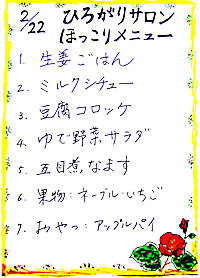 2/22 ひろがりサロン
ほっこりメニュー
1. 生姜ごはん
2. ミルクシチュー
3. 豆腐コロッケ
4. ゆで野菜サラダ
5. 五目煮なます
6. 果物:ネーブル・いちご
7. おやつ:アップルパイ